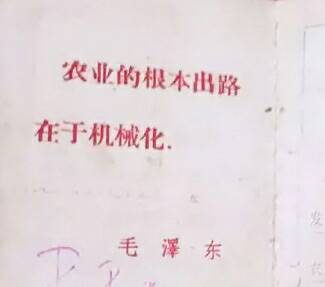 农业的根本出路
在于机械化.
毛澤东
发
农